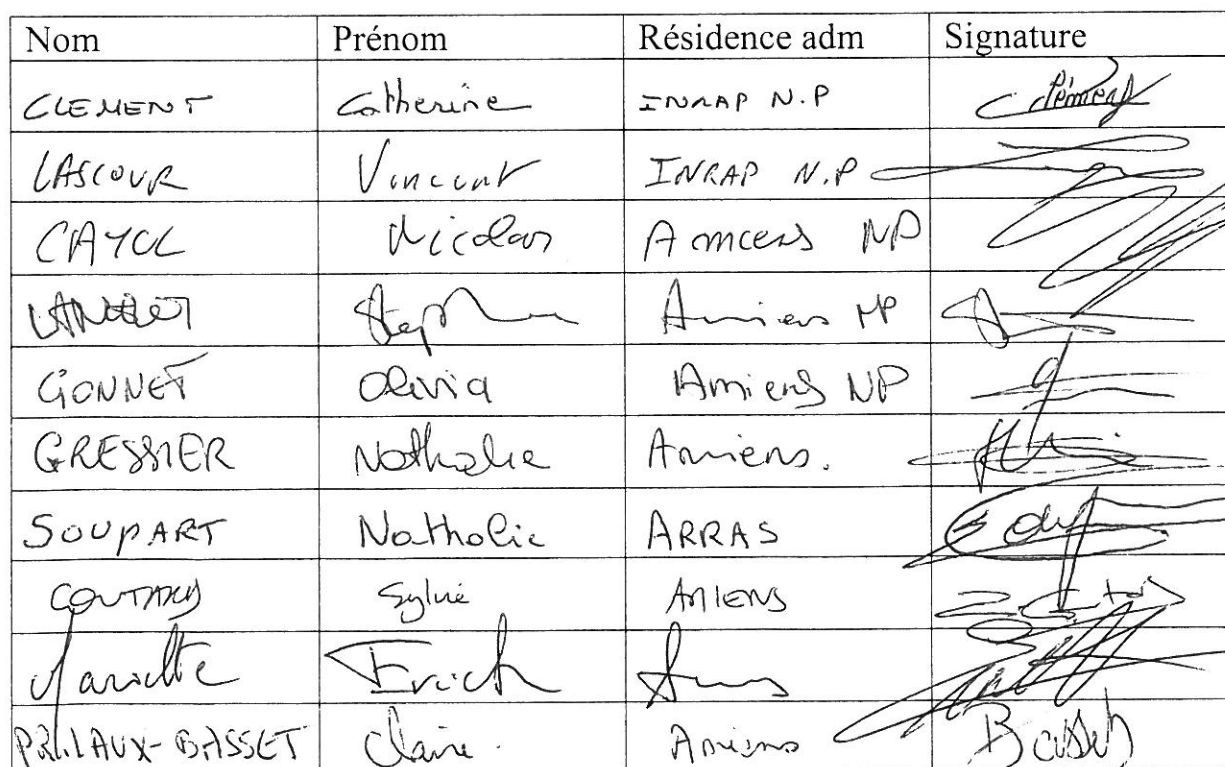 Nom Prénom Résidence adm Signature
CLEMENT Catherine INRAP N.P Clément
LASCOUR Vincent INRAP N.P
CAYOL Nicolas Amiens NP
Stéphane Amiens NP
GONNET Olivia Amiens NP
GRESSIER Nathalie Amiens.
SOUPART Nathalie ARRAS
COUTARD Sylvie AMIENS
Mariette Erick Amiens
PRILAUX-BASSET Claire. Amiens Basset